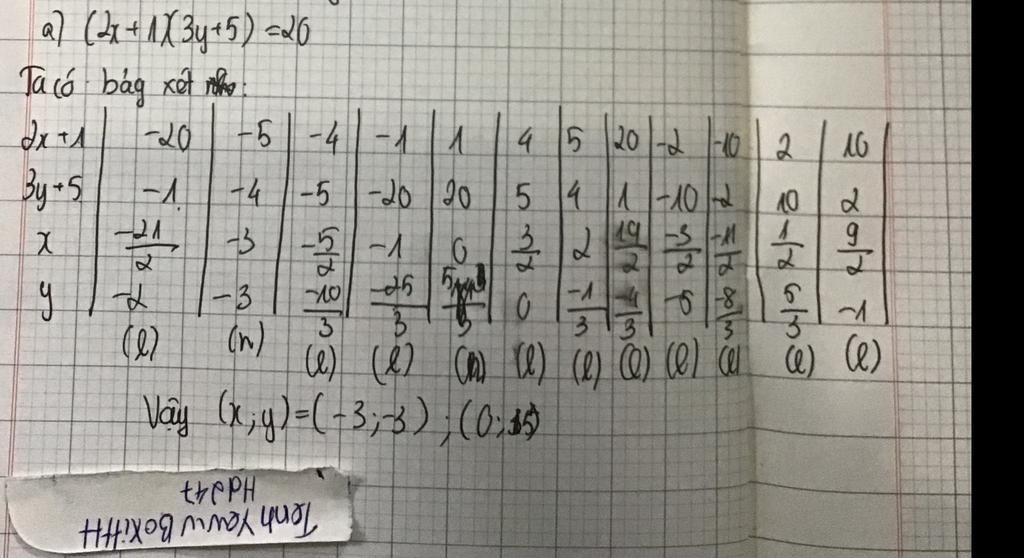 a) (2x+1)(3y+5) = 20
Ta có bảg xét
2x+1 | -20 | -5 | -4 | -1 | 1 | 4 | 5 | 20 | -2 | -10 | 2 | 10
3y+5 | -1 | -4 | -5 | -20 | 20 | 5 | 4 | 1 | -10 | -2 | 10 | 2
x | -21/2 | -3 | -5/2 | -1 | 0 | 3/2 | 2 | 19/2 | -3/2 | -11/2 | 1/2 | 9/2
y | -2 | -3 | -10/3 | -25/3 | 5 | 0 | -1/3 | -4/3 | -5 | -8/3 | 5/3 | -1
(l) (n) (l) (l) (n) (l) (l) (l) (l) (l) (l) (l)
Vậy (x;y) = (-3;-3) ; (0; 5)
Tenh Yeww BoXiHH
Hdg247